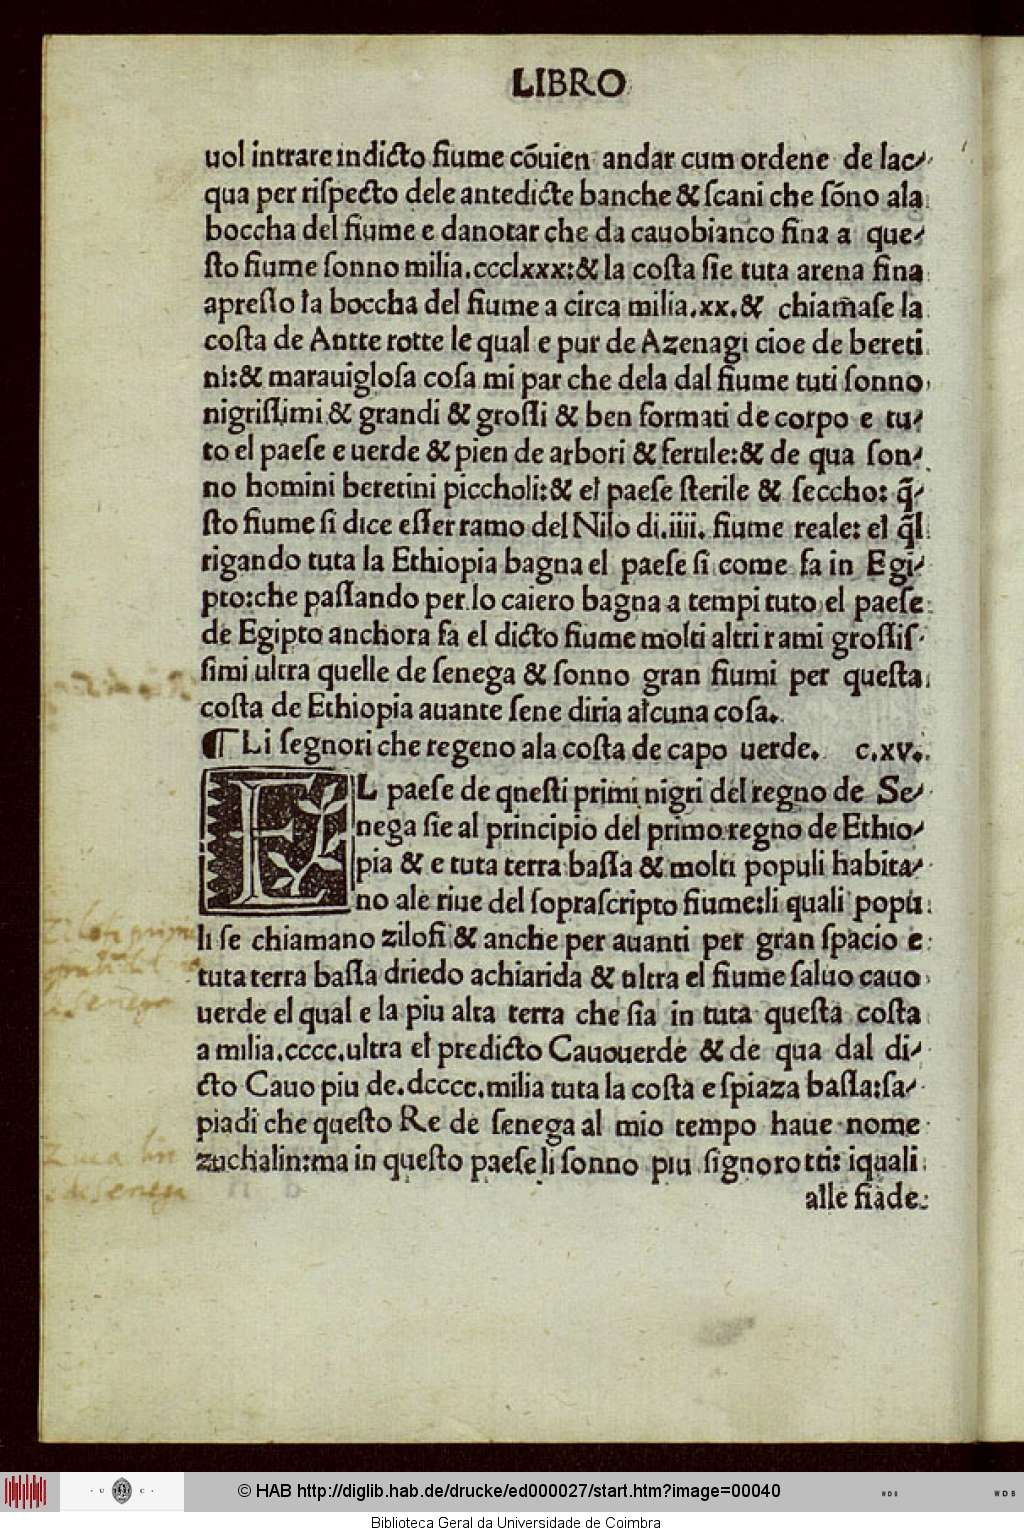 LIBRO
uol intrare indicto fiume cõuien andar cum ordene de lac-
qua per riſpecto dele antedicte banche & ſcani che ſõno ala
boccha del fiume e danotar che da cauobianco fina a que-
ſto fiume ſonno milia.ccclxxx:& la coſta ſie tuta arena fina
apreſſo la boccha del fiume a circa milia.xx.& chiam̃aſe la
coſta de Antte rotte le qual e pur de Azenagi cioe de bereti
ni:& marauigloſa coſa mi par che dela dal fiume tuti ſonno
nigriſſimi & grandi & groſſi & ben formati de corpo e tu-
to el paeſe e uerde & pien de arbori & fertile:& de qua ſon-
no homini beretini piccholi:& el paeſe ſterile & ſeccho: q̃-
ſto fiume ſi dice eſſer ramo del Nilo di.iiii. fiume reale: el q̃l
rigando tuta la Ethiopia bagna el paeſe ſi come fa in Egi-
pto:che paſſando per lo caiero bagna a tempi tuto el paeſe
de Egipto anchora fa el dicto fiume molti altri rami groſſiſ-
ſimi ultra quelle de ſenega & ſonno gran fiumi per queſta
coſta de Ethiopia auante ſene diria alcuna coſa.
¶ Li ſegnori che regeno ala coſta de capo uerde. c.xv.
EL paeſe de qneſti primi nigri del regno de Se-
nega ſie al principio del primo regno de Ethio-
pia & e tuta terra baſſa & molti populi habita-
no ale riue del ſopraſcripto fiume:li quali popu
li ſe chiamano zilofi & anche per auanti per gran ſpacio e
tuta terra baſſa driedo achiarida & ultra el fiume ſaluo cauo
uerde el qual e la piu alta terra che ſia in tuta queſta coſta
a milia.cccc.ultra el predicto Cauouerde & de qua dal di-
cto Cauo piu de.dcccc.milia tuta la coſta e ſpiaza baſſa:ſa-
piadi che queſto Re de ſenega al mio tempo haue nome
zuchalin:ma in queſto paeſe li ſonno piu ſignorotti: iquali
alle fiade
Zilofi primi
de Senega
© HAB http://diglib.hab.de/drucke/ed000027/start.htm?image=00040
Biblioteca Geral da Universidade de Coimbra